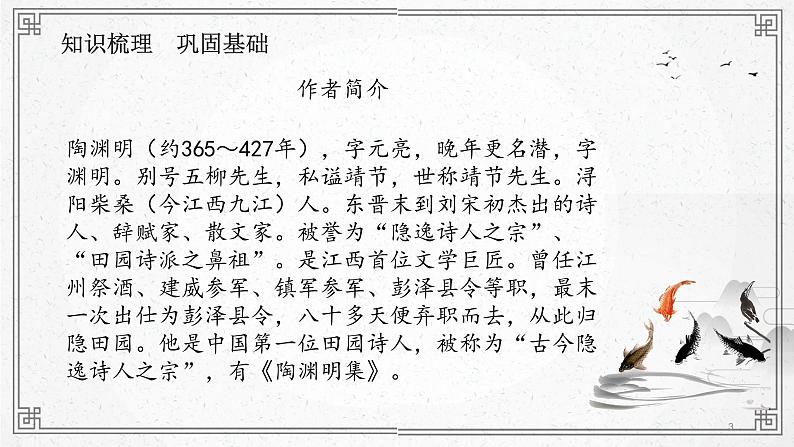 知识梳理　巩固基础
作者简介
陶渊明（约365～427年），字元亮，晚年更名潜，字
渊明。别号五柳先生，私谥靖节，世称靖节先生。浔
阳柴桑（今江西九江）人。东晋末到刘宋初杰出的诗
人、辞赋家、散文家。被誉为“隐逸诗人之宗”、
“田园诗派之鼻祖”。是江西首位文学巨匠。曾任江
州祭酒、建威参军、镇军参军、彭泽县令等职，最末
一次出仕为彭泽县令，八十多天便弃职而去，从此归
隐田园。他是中国第一位田园诗人，被称为“古今隐
逸诗人之宗”，有《陶渊明集》。
3